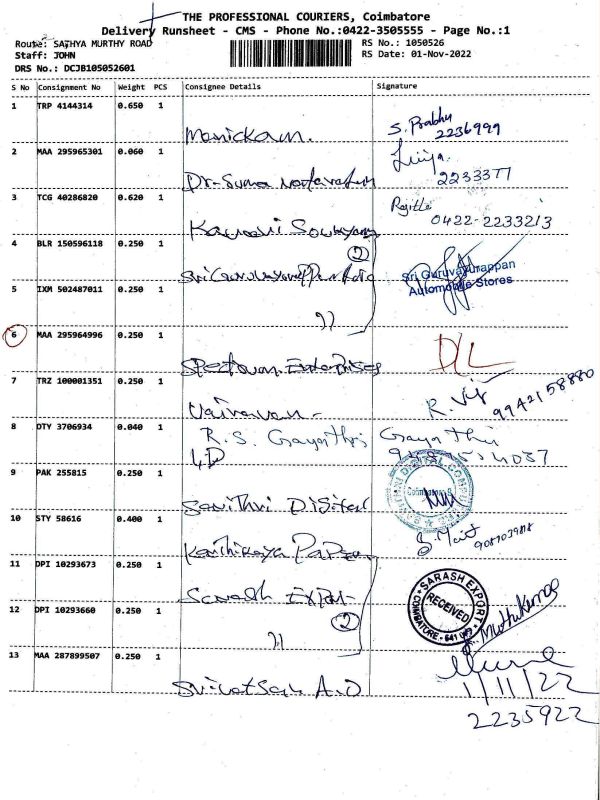 THE PROFESSIONAL COURIERS, Coimbatore
Delivery Runsheet - CMS - Phone No.:0422-3505555 - Page No.:1
Route: SATHYA MURTHY ROAD
RS No.: 1050526
Staff: JOHN
RS Date: 01-Nov-2022
DRS No.: DCJB105052601
S No Consignment No Weight PCS Consignee Details Signature
1 TRP 4144314 0.650 1
Manickam. S. Prabhu
2236999
2 MAA 295965301 0.060 1
Dr-Suma
2233377
3 TCG 40286820 0.620 1
0422-2233213
4 BLR 150596118 0.250 1
②
Sri Guruvayurappan
Automobile Stores
5 IXM 502487011 0.250 1
6 MAA 295964996 0.250 1
Spectrum Enterprises D/L
7 TRZ 100001351 0.250 1
Vairavan - R. Vij
9942158880
8 DTY 3706934 0.040 1
R.S. Gayathri Gayathri
9 PAK 255815 0.250 1
Savithri Digital
10 STY 58616 0.400 1
Karthikeya Papers
11 DPI 10293673 0.250 1
Sarash Export
SARASH EXPORT
RECEIVED
12 DPI 10293660 0.250 1
②
Muthukumar
13 MAA 287899507 0.250 1
Srivatsan A.D
1/11/22
2235922